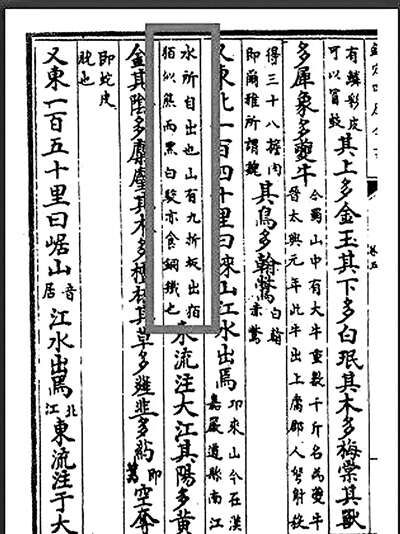 卷五
有鱗彩皮
可以冒鼓
其上多金玉其下多白珉其木多梅棠其獸
多犀象多夔牛
今蜀山中有大牛重數千斤名為夔牛
晉太興元年此牛出上庸郡人弩射殺
得三十八擔肉
即爾雅所謂魏
其鳥多翰鷩
白翰
赤鷩
又東北一百四十里曰崍山江水出焉
邛來山今在漢
嘉嚴道縣南江
水所自出也山有九折坂出狛
狛似熊而黑白駮亦食銅鐵也
東流注大江其陽多黃
金其陰多麋麈其木多檀柘其草多䪥韭多葯
即
虈
空奪
即蛇皮
脫也
又東一百五十里曰崌山
音
居
江水出焉
北
江
東流注于大